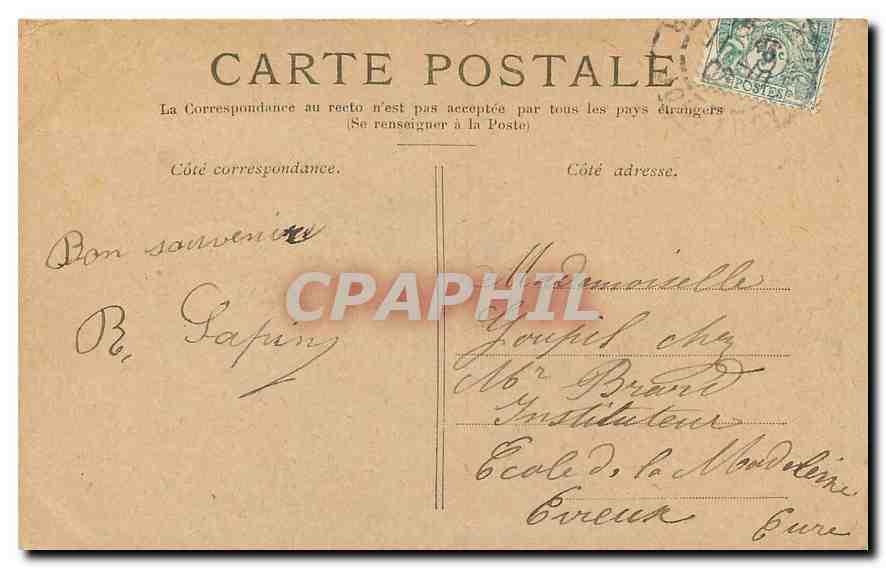 CARTE POSTALE
La Correspondance au recto n'est pas acceptée par tous les pays étrangers
(Se renseigner à la Poste)
Côté correspondance.
Côté adresse.
Bon souvenir
R. Lapin
Mademoiselle
Goupil chez
Mr Brard
Instituteur
Ecole de la Madeleine
Evreux Eure
POSTES
CPAPHIL